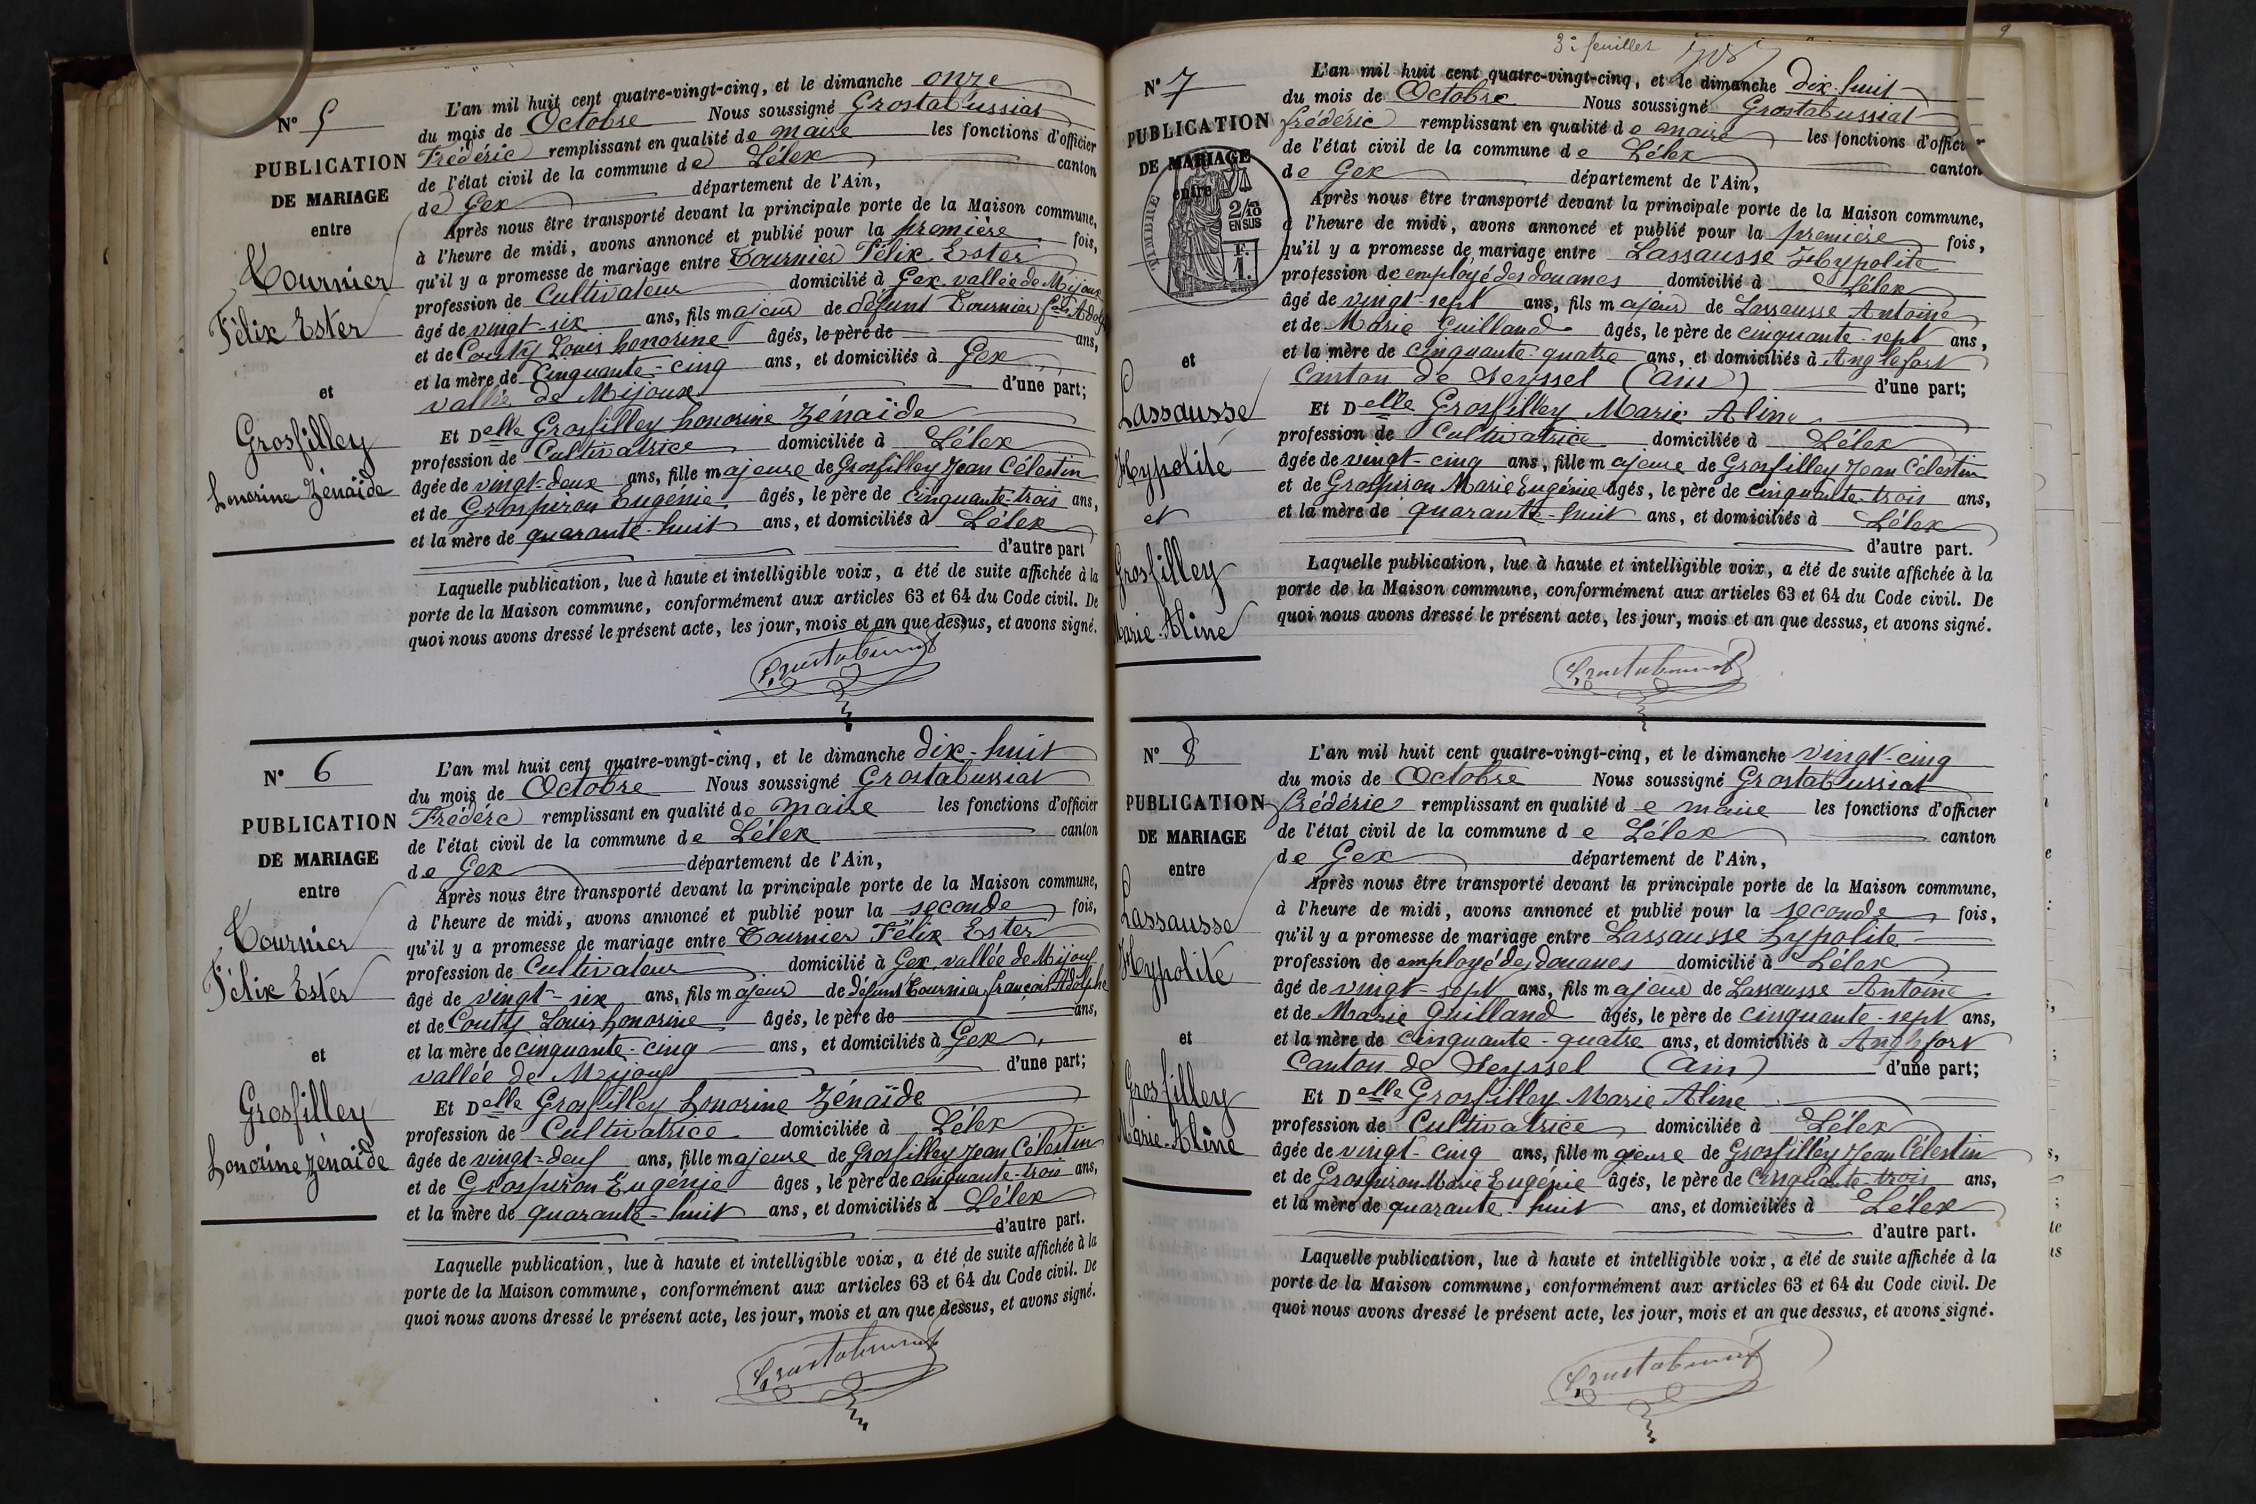 N° 5
PUBLICATION
DE MARIAGE
entre
Tournier
Félix Ester
et
Grosfilley
honorine Zénaïde
L'an mil huit cent quatre-vingt-cinq, et le dimanche onze
du mois de Octobre Nous soussigné Grostabussiat
Frédéric remplissant en qualité de maire les fonctions d'officier
de l'état civil de la commune de Lélex canton
de Gex département de l'Ain,
Après nous être transporté devant la principale porte de la Maison commune,
à l'heure de midi, avons annoncé et publié pour la première fois,
qu'il y a promesse de mariage entre Tournier Félix Ester
profession de Cultivateur domicilié à Gex vallée de Mijoux
âgé de vingt-six ans, fils majeur de défunt Tournier fçois Adolp
et de Coutty Louis honorine âgés, le père de ans,
et la mère de Cinquante-cinq ans, et domiciliés à Gex,
vallée de Mijoux d'une part;
Et Delle Grosfilley honorine Zénaïde
profession de Cultivatrice domiciliée à Lélex
âgée de vingt-deux ans, fille majeure de Grosfilley Jean Célestin
et de Grospiron Eugénie âgés, le père de cinquante-trois ans,
et la mère de quarante-huit ans, et domiciliés à Lélex
d'autre part
Laquelle publication, lue à haute et intelligible voix, a été de suite affichée à la
porte de la Maison commune, conformément aux articles 63 et 64 du Code civil. De
quoi nous avons dressé le présent acte, les jour, mois et an que dessus, et avons signé.
Grostabussiat
N° 6
PUBLICATION
DE MARIAGE
entre
Tournier
Félix Ester
et
Grosfilley
honorine Zénaïde
L'an mil huit cent quatre-vingt-cinq, et le dimanche dix-huit
du mois de Octobre Nous soussigné Grostabussiat
Frédéric remplissant en qualité de maire les fonctions d'officier
de l'état civil de la commune de Lélex canton
de Gex département de l'Ain,
Après nous être transporté devant la principale porte de la Maison commune,
à l'heure de midi, avons annoncé et publié pour la seconde fois,
qu'il y a promesse de mariage entre Tournier Félix Ester
profession de Cultivateur domicilié à Gex vallée de Mijoux
âgé de vingt-six ans, fils majeur de défunt Tournier françois Adolphe
et de Coutty Louis honorine âgés, le père de ans,
et la mère de cinquante-cinq ans, et domiciliés à Gex,
vallée de Mijoux d'une part;
Et Delle Grosfilley honorine Zénaïde
profession de Cultivatrice domiciliée à Lélex
âgée de vingt-deux ans, fille majeure de Grosfilley Jean Célestin
et de Grospiron Eugénie âgés, le père de cinquante-trois ans,
et la mère de quarante-huit ans, et domiciliés à Lélex
d'autre part.
Laquelle publication, lue à haute et intelligible voix, a été de suite affichée à la
porte de la Maison commune, conformément aux articles 63 et 64 du Code civil. De
quoi nous avons dressé le présent acte, les jour, mois et an que dessus, et avons signé.
Grostabussiat
3e feuillet
9
N° 7
PUBLICATION
DE MARIAGE
entre
TIMBRE
2/10
EN SUS
F.
1.
et
Lassausse
Hypolite
et
Grosfilley
Marie-Aline
L'an mil huit cent quatre-vingt-cinq, et le dimanche dix-huit
du mois de Octobre Nous soussigné Grostabussiat
frédéric remplissant en qualité de maire les fonctions d'officier
de l'état civil de la commune de Lélex canton
de Gex département de l'Ain,
Après nous être transporté devant la principale porte de la Maison commune,
à l'heure de midi, avons annoncé et publié pour la première fois,
qu'il y a promesse de mariage entre Lassausse Hypolite
profession de employé des douanes domicilié à Lélex
âgé de vingt-sept ans, fils majeur de Lassausse Antoine
et de Marie Guilland âgés, le père de cinquante-sept ans,
et la mère de cinquante-quatre ans, et domiciliés à Anglefort
Canton de Seyssel (Ain) d'une part;
Et Delle Grosfilley Marie Aline
profession de Cultivatrice domiciliée à Lélex
âgée de vingt-cinq ans, fille majeure de Grosfilley Jean Célestin
et de Grospiron Marie Eugénie âgés, le père de cinquante-trois ans,
et la mère de quarante-huit ans, et domiciliés à Lélex
d'autre part.
Laquelle publication, lue à haute et intelligible voix, a été de suite affichée à la
porte de la Maison commune, conformément aux articles 63 et 64 du Code civil. De
quoi nous avons dressé le présent acte, les jour, mois et an que dessus, et avons signé.
Grostabussiat
N° 8
PUBLICATION
DE MARIAGE
entre
Lassausse
Hypolite
et
Grosfilley
Marie-Aline
L'an mil huit cent quatre-vingt-cinq, et le dimanche vingt-cinq
du mois de Octobre Nous soussigné Grostabussiat
frédéric remplissant en qualité de maire les fonctions d'officier
de l'état civil de la commune de Lélex canton
de Gex département de l'Ain,
Après nous être transporté devant la principale porte de la Maison commune,
à l'heure de midi, avons annoncé et publié pour la seconde fois,
qu'il y a promesse de mariage entre Lassausse hypolite
profession de employé des douanes domicilié à Lélex
âgé de vingt-sept ans, fils majeur de Lassausse Antoine
et de Marie Guilland âgés, le père de cinquante-sept ans,
et la mère de cinquante-quatre ans, et domiciliés à Anglefort
Canton de Seyssel (Ain) d'une part;
Et Delle Grosfilley Marie Aline
profession de Cultivatrice domiciliée à Lélex
âgée de vingt-cinq ans, fille majeure de Grosfilley Jean Célestin
et de Grospiron Marie Eugénie âgés, le père de Cinquante-trois ans,
et la mère de quarante-huit ans, et domiciliés à Lélex
d'autre part.
Laquelle publication, lue à haute et intelligible voix, a été de suite affichée à la
porte de la Maison commune, conformément aux articles 63 et 64 du Code civil. De
quoi nous avons dressé le présent acte, les jour, mois et an que dessus, et avons signé.
Grostabussiat